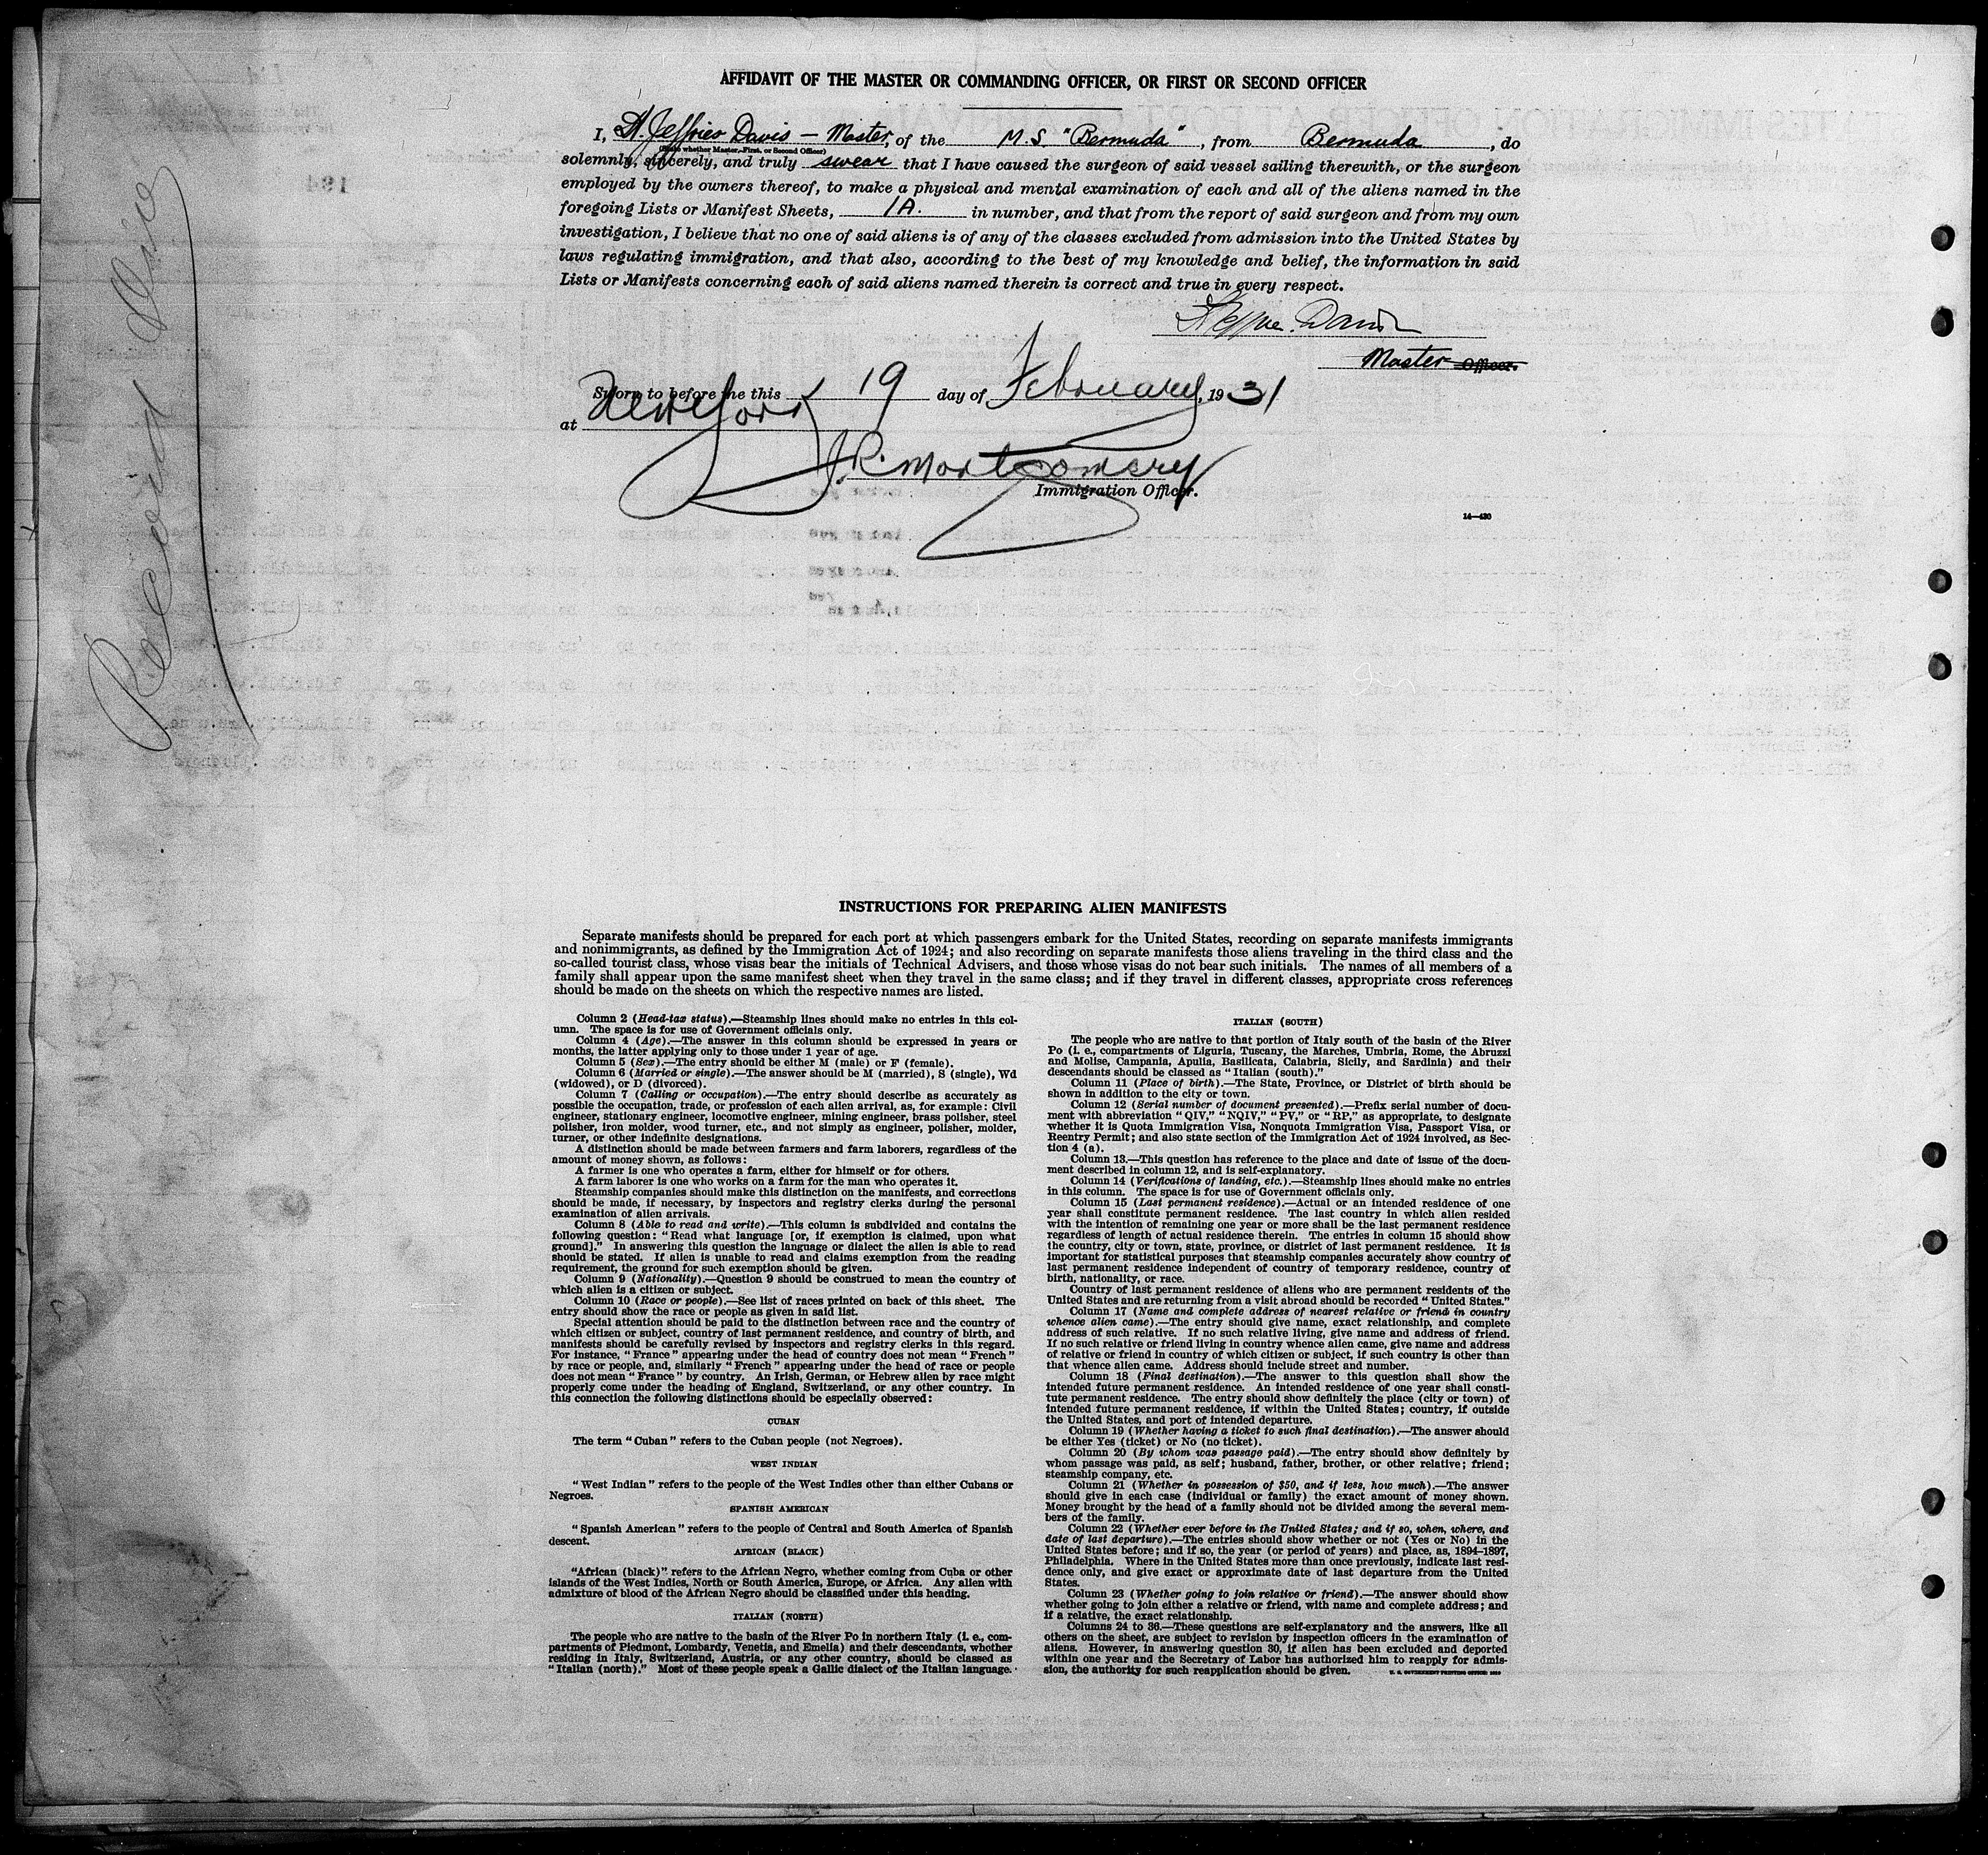 AFFIDAVIT OF THE MASTER OR COMMANDING OFFICER, OR FIRST OR SECOND OFFICER
I, Jeffries Davis — Master, of the M.S. "Bermuda", from Bermuda, do
(State whether Master, First, or Second Officer)
solemnly, sincerely, and truly swear that I have caused the surgeon of said vessel sailing therewith, or the surgeon
employed by the owners thereof, to make a physical and mental examination of each and all of the aliens named in the
foregoing Lists or Manifest Sheets, 1A. in number, and that from the report of said surgeon and from my own
investigation, I believe that no one of said aliens is of any of the classes excluded from admission into the United States by
laws regulating immigration, and that also, according to the best of my knowledge and belief, the information in said
Lists or Manifests concerning each of said aliens named therein is correct and true in every respect.
Davis
Master Officer.
Sworn to before me this 19 day of February, 1931
at New York
J.R. Montgomery
Immigration Officer.
14—430
Record
INSTRUCTIONS FOR PREPARING ALIEN MANIFESTS
Separate manifests should be prepared for each port at which passengers embark for the United States, recording on separate manifests immigrants
and nonimmigrants, as defined by the Immigration Act of 1924; and also recording on separate manifests those aliens traveling in the third class and the
so-called tourist class, whose visas bear the initials of Technical Advisers, and those whose visas do not bear such initials. The names of all members of a
family shall appear upon the same manifest sheet when they travel in the same class; and if they travel in different classes, appropriate cross references
should be made on the sheets on which the respective names are listed.
Column 2 (Head-tax status).—Steamship lines should make no entries in this col-
umn. The space is for use of Government officials only.
Column 4 (Age).—The answer in this column should be expressed in years or
months, the latter applying only to those under 1 year of age.
Column 5 (Sex).—The entry should be either M (male) or F (female).
Column 6 (Married or single).—The answer should be M (married), S (single), Wd
(widowed), or D (divorced).
Column 7 (Calling or occupation).—The entry should describe as accurately as
possible the occupation, trade, or profession of each alien arrival, as, for example: Civil
engineer, stationary engineer, locomotive engineer, mining engineer, brass polisher, steel
polisher, iron molder, wood turner, etc., and not simply as engineer, polisher, molder,
turner, or other indefinite designations.
A distinction should be made between farmers and farm laborers, regardless of the
amount of money shown, as follows:
A farmer is one who operates a farm, either for himself or for others.
A farm laborer is one who works on a farm for the man who operates it.
Steamship companies should make this distinction on the manifests, and corrections
should be made, if necessary, by inspectors and registry clerks during the personal
examination of alien arrivals.
Column 8 (Able to read and write).—This column is subdivided and contains the
following question: "Read what language [or, if exemption is claimed, upon what
ground]." In answering this question the language or dialect the alien is able to read
should be stated. If alien is unable to read and claims exemption from the reading
requirement, the ground for such exemption should be given.
Column 9 (Nationality).—Question 9 should be construed to mean the country of
which alien is a citizen or subject.
Column 10 (Race or people).—See list of races printed on back of this sheet. The
entry should show the race or people as given in said list.
Special attention should be paid to the distinction between race and the country of
which citizen or subject, country of last permanent residence, and country of birth, and
manifests should be carefully revised by inspectors and registry clerks in this regard.
For instance, "France" appearing under the head of country does not mean "French"
by race or people, and, similarly "French" appearing under the head of race or people
does not mean "France" by country. An Irish, German, or Hebrew alien by race might
properly come under the heading of England, Switzerland, or any other country. In
this connection the following distinctions should be especially observed:
CUBAN
The term "Cuban" refers to the Cuban people (not Negroes).
WEST INDIAN
"West Indian" refers to the people of the West Indies other than either Cubans or
Negroes.
SPANISH AMERICAN
"Spanish American" refers to the people of Central and South America of Spanish
descent.
AFRICAN (BLACK)
"African (black)" refers to the African Negro, whether coming from Cuba or other
islands of the West Indies, North or South America, Europe, or Africa. Any alien with
admixture of blood of the African Negro should be classified under this heading.
ITALIAN (NORTH)
The people who are native to the basin of the River Po in northern Italy (i. e., com-
partments of Piedmont, Lombardy, Venetia, and Emelia) and their descendants, whether
residing in Italy, Switzerland, Austria, or any other country, should be classed as
"Italian (north)." Most of these people speak a Gallic dialect of the Italian language.
ITALIAN (SOUTH)
The people who are native to that portion of Italy south of the basin of the River
Po (i. e., compartments of Liguria, Tuscany, the Marches, Umbria, Rome, the Abruzzi
and Molise, Campania, Apulia, Basilicata, Calabria, Sicily, and Sardinia) and their
descendants should be classed as "Italian (south)."
Column 11 (Place of birth).—The State, Province, or District of birth should be
shown in addition to the city or town.
Column 12 (Serial number of document presented).—Prefix serial number of docu-
ment with abbreviation "QIV," "NQIV," "PV," or "RP," as appropriate, to designate
whether it is Quota Immigration Visa, Nonquota Immigration Visa, Passport Visa, or
Reentry Permit; and also state section of the Immigration Act of 1924 involved, as Sec-
tion 4 (a).
Column 13.—This question has reference to the place and date of issue of the docu-
ment described in column 12, and is self-explanatory.
Column 14 (Verifications of landing, etc.).—Steamship lines should make no entries
in this column. The space is for use of Government officials only.
Column 15 (Last permanent residence).—Actual or an intended residence of one
year shall constitute permanent residence. The last country in which alien resided
with the intention of remaining one year or more shall be the last permanent residence
regardless of length of actual residence therein. The entries in column 15 should show
the country, city or town, state, province, or district of last permanent residence. It is
important for statistical purposes that steamship companies accurately show country of
last permanent residence independent of country of temporary residence, country of
birth, nationality, or race.
Country of last permanent residence of aliens who are permanent residents of the
United States and are returning from a visit abroad should be recorded "United States."
Column 17 (Name and complete address of nearest relative or friend in country
whence alien came).—The entry should give name, exact relationship, and complete
address of such relative. If no such relative living, give name and address of friend.
If no such relative or friend living in country whence alien came, give name and address
of relative or friend in country of which citizen or subject, if such country is other than
that whence alien came. Address should include street and number.
Column 18 (Final destination).—The answer to this question shall show the
intended future permanent residence. An intended residence of one year shall consti-
tute permanent residence. The entry should show definitely the place (city or town) of
intended future permanent residence, if within the United States; country, if outside
the United States, and port of intended departure.
Column 19 (Whether having a ticket to such final destination).—The answer should
be either Yes (ticket) or No (no ticket).
Column 20 (By whom was passage paid).—The entry should show definitely by
whom passage was paid, as self; husband, father, brother, or other relative; friend;
steamship company, etc.
Column 21 (Whether in possession of $50, and if less, how much).—The answer
should give in each case (individual or family) the exact amount of money shown.
Money brought by the head of a family should not be divided among the several mem-
bers of the family.
Column 22 (Whether ever before in the United States; and if so, when, where, and
date of last departure).—The entries should show whether or not (Yes or No) in the
United States before; and if so, the year (or period of years) and place, as, 1894–1897,
Philadelphia. Where in the United States more than once previously, indicate last resi-
dence only, and give exact or approximate date of last departure from the United
States.
Column 23 (Whether going to join relative or friend).—The answer should show
whether going to join either a relative or friend, with name and complete address; and
if a relative, the exact relationship.
Columns 24 to 36.—These questions are self-explanatory and the answers, like all
others on the sheet, are subject to revision by inspection officers in the examination of
aliens. However, in answering question 30, if alien has been excluded and deported
within one year and the Secretary of Labor has authorized him to reapply for admis-
sion, the authority for such reapplication should be given.
U. S. GOVERNMENT PRINTING OFFICE